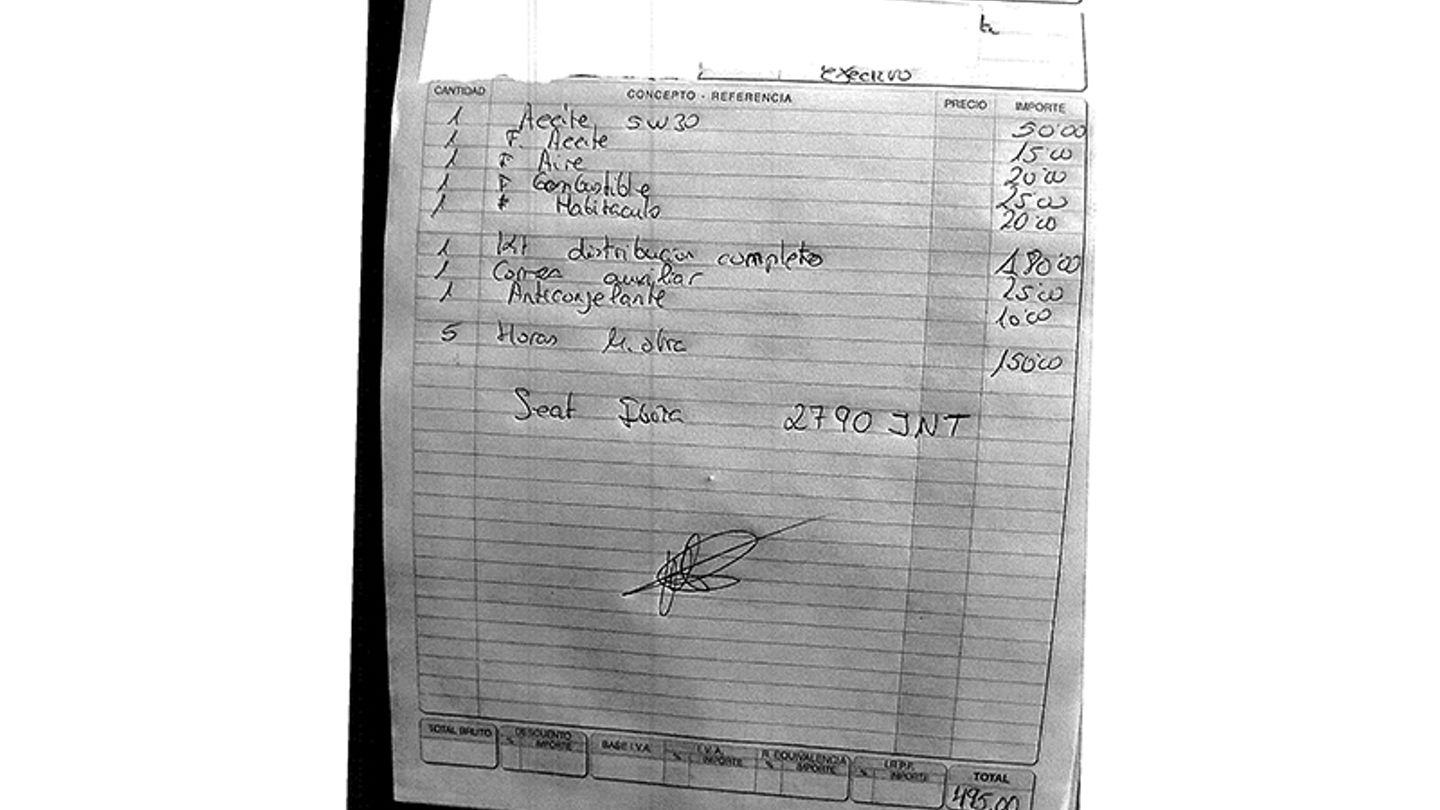 execivo
CANTIDAD CONCEPTO - REFERENCIA PRECIO IMPORTE
1 Aceite 5W30 50'00
1 F. Aceite 15'00
1 F Aire 20'00
1 F Combustible 25'00
1 F Habitaculo 20'00
1 Kit distribucion completo 180'00
1 Correa auxiliar 25'00
1 Anticongelante 10'00
5 Horas M. obra 150'00
Seat Ibiza 2790 JNT
TOTAL BRUTO DESCUENTO BASE I.V.A. I.V.A. R. EQUIVALENCIA I.R.P.F. TOTAL
% IMPORTE % IMPORTE % IMPORTE % IMPORTE
495,00